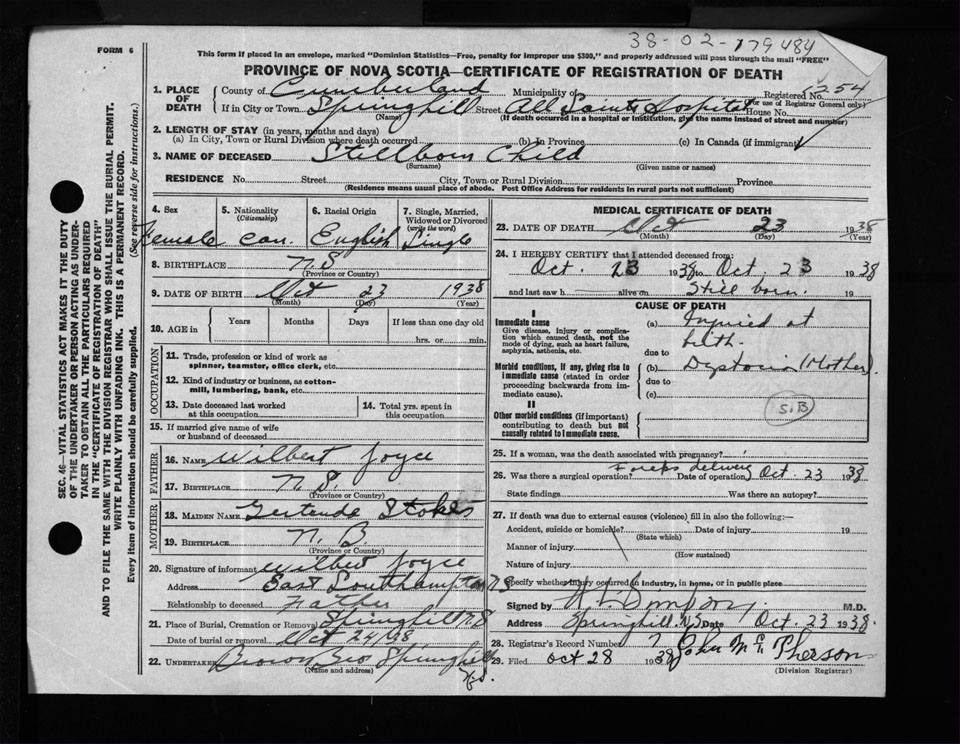 38-02-179484
FORM 6
This form if placed in an envelope, marked "Dominion Statistics—Free, penalty for improper use $300," and properly addressed will pass through the mail "FREE"
PROVINCE OF NOVA SCOTIA—CERTIFICATE OF REGISTRATION OF DEATH
1. PLACE OF DEATH
County of Cumberland Municipality of Registered No. 254
(For use of Registrar General only)
If in City or Town Springhill Street All Saints Hospital House No.
(Name) (If death occurred in a hospital or institution, give the name instead of street and number)
2. LENGTH OF STAY (in years, months and days)
(a) In City, Town or Rural Division where death occurred (b) In Province (c) In Canada (if immigrant)
3. NAME OF DECEASED Stillborn Child
(Surname) (Given name or names)
RESIDENCE No. Street City, Town or Rural Division Province
(Residence means usual place of abode. Post Office Address for residents in rural parts not sufficient)
4. Sex 5. Nationality (Citizenship) 6. Racial Origin 7. Single, Married, Widowed or Divorced (write the word)
Female Can. English Single
8. BIRTHPLACE N.S
(Province or Country)
9. DATE OF BIRTH Oct 23 1938
(Month) (Day) (Year)
10. AGE in Years Months Days If less than one day old
hrs. or min.
OCCUPATION
11. Trade, profession or kind of work as spinner, teamster, office clerk, etc.
12. Kind of industry or business, as cotton-mill, lumbering, bank, etc.
13. Date deceased last worked at this occupation
14. Total yrs. spent in this occupation
15. If married give name of wife or husband of deceased
FATHER
16. Name Wilbert Joyce
17. Birthplace N.S.
(Province or Country)
MOTHER
18. Maiden Name Gertrude Stokes
19. Birthplace N.B.
(Province or Country)
20. Signature of informant Wilbert Joyce
Address East Southampton NS
Relationship to deceased Father
21. Place of Burial, Cremation or Removal Springhill NS
Date of burial or removal Oct 24/38
22. UNDERTAKER Brown Bro Springhill
(Name and address) NS.
MEDICAL CERTIFICATE OF DEATH
23. DATE OF DEATH Oct 23 1938
(Month) (Day) (Year)
24. I HEREBY CERTIFY that I attended deceased from:
Oct. 23 1938 to Oct. 23 1938
and last saw h alive on Still born. 19
CAUSE OF DEATH
I
Immediate cause
Give disease, injury or complication which caused death, not the mode of dying, such as heart failure, asphyxia, asthenia, etc.
(a) Injured at
birth.
due to
Morbid conditions, if any, giving rise to immediate cause (stated in order proceeding backwards from immediate cause).
(b) Dystocia (Mother)
due to
(c)
S.B
II
Other morbid conditions (if important) contributing to death but not causally related to immediate cause.
25. If a woman, was the death associated with pregnancy?
26. Was there a surgical operation? Forceps delivery Date of operation Oct. 23 1938
State findings Was there an autopsy?
27. If death was due to external causes (violence) fill in also the following:—
Accident, suicide or homicide? Date of injury 19
(State which)
Manner of injury
(How sustained)
Nature of injury
Specify whether injury occurred in industry, in home, or in public place
Signed by M.D.
Address Springhill. N.S. Date Oct. 23 1938.
28. Registrar's Record Number 7
29. Filed Oct 28 1938 John McPherson
(Division Registrar)
SEC. 46—VITAL STATISTICS ACT MAKES IT THE DUTY
OF THE UNDERTAKER OR PERSON ACTING AS UNDER-
TAKER TO OBTAIN ALL THE PARTICULARS REQUIRED
IN THE "CERTIFICATE OF REGISTRATION OF DEATH"
AND TO FILE THE SAME WITH THE DIVISION REGISTRAR WHO SHALL ISSUE THE BURIAL PERMIT.
WRITE PLAINLY WITH UNFADING INK. THIS IS A PERMANENT RECORD.
Every item of information should be carefully supplied. (See reverse side for instructions.)